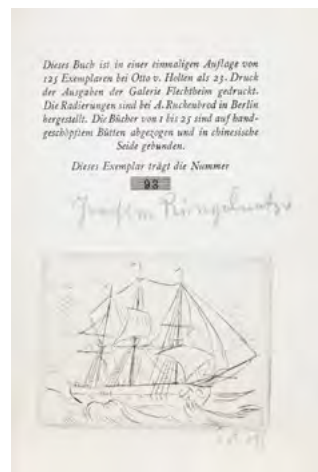 Dieses Buch ist in einer einmaligen Auflage von
125 Exemplaren bei Otto v. Holten als 23. Druck
der Ausgaben der Galerie Flechtheim gedruckt.
Die Radierungen sind bei A. Ruckenbrod in Berlin
hergestellt. Die Bücher von 1 bis 25 sind auf hand-
geschöpftem Bütten abgezogen und in chinesische
Seide gebunden.
Dieses Exemplar trägt die Nummer
93
Joachim Ringelnatz